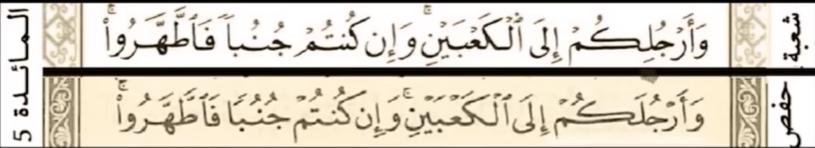 شعبة
وَأَرْجُلِكُمْ إِلَى ٱلْكَعْبَيْنِۚ وَإِن كُنتُمْ جُنُبًا فَٱطَّهَّرُوا۟ۚ
حفص
وَأَرْجُلَكُمْ إِلَى ٱلْكَعْبَيْنِۚ وَإِن كُنتُمْ جُنُبًا فَٱطَّهَّرُوا۟ۚ
المائدة 5